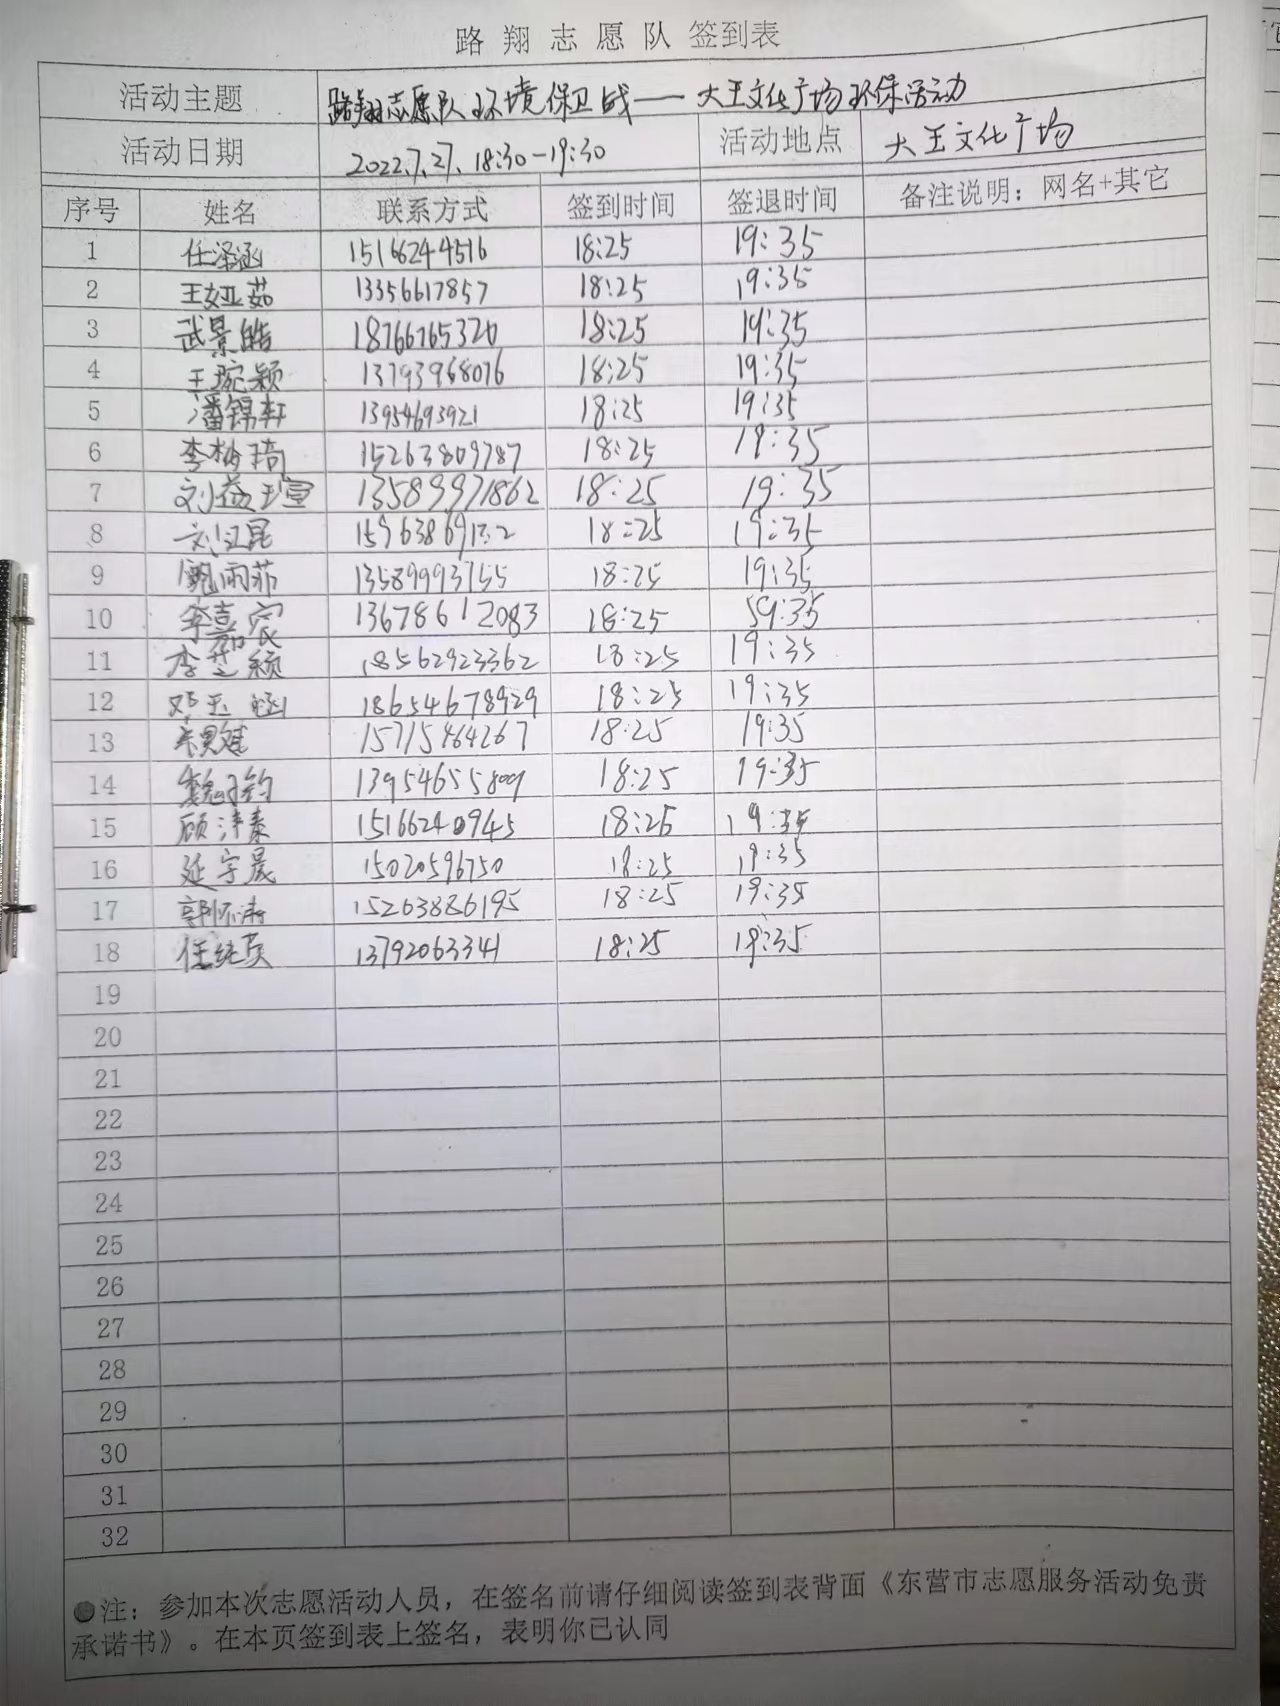 路翔志愿队 签到表
活动主题 路翔志愿队环境保卫战——大王文化广场环保活动
活动日期 2022.7.27. 18:30-19:30 活动地点 大王文化广场
序号 姓名 联系方式 签到时间 签退时间 备注说明：网名+其它
1 任泽涵 15166244516 18:25 19:35
2 王娅茹 13356617857 18:25 19:35
3 武景皓 18766765320 18:25 19:35
4 王琬颖 13793968076 18:25 19:35
5 潘锦轩 13954693921 18:25 19:35
6 李 琦 15263809787 18:25 19:35
7 刘益瑄 13589971862 18:25 19:35
8 刘江昆 18:25 19:35
9 鲍雨菲 13589993755 18:25 19:35
10 李嘉宸 13678612083 18:25 19:35
11 李芝颖 18562923362 18:25 19:35
12 邓玉涵 18654678929 18:25 19:35
13 15715464267 18:25 19:35
14 13954655809 18:25 19:35
15 顾沣泰 15166240945 18:25 19:35
16 延宇晨 15020596750 18:25 19:35
17 郭怀涛 15263886195 18:25 19:35
18 任纯英 13792063341 18:25 19:35
19
20
21
22
23
24
25
26
27
28
29
30
31
32
●注：参加本次志愿活动人员，在签名前请仔细阅读签到表背面《东营市志愿服务活动免责
承诺书》。在本页签到表上签名，表明你已认同